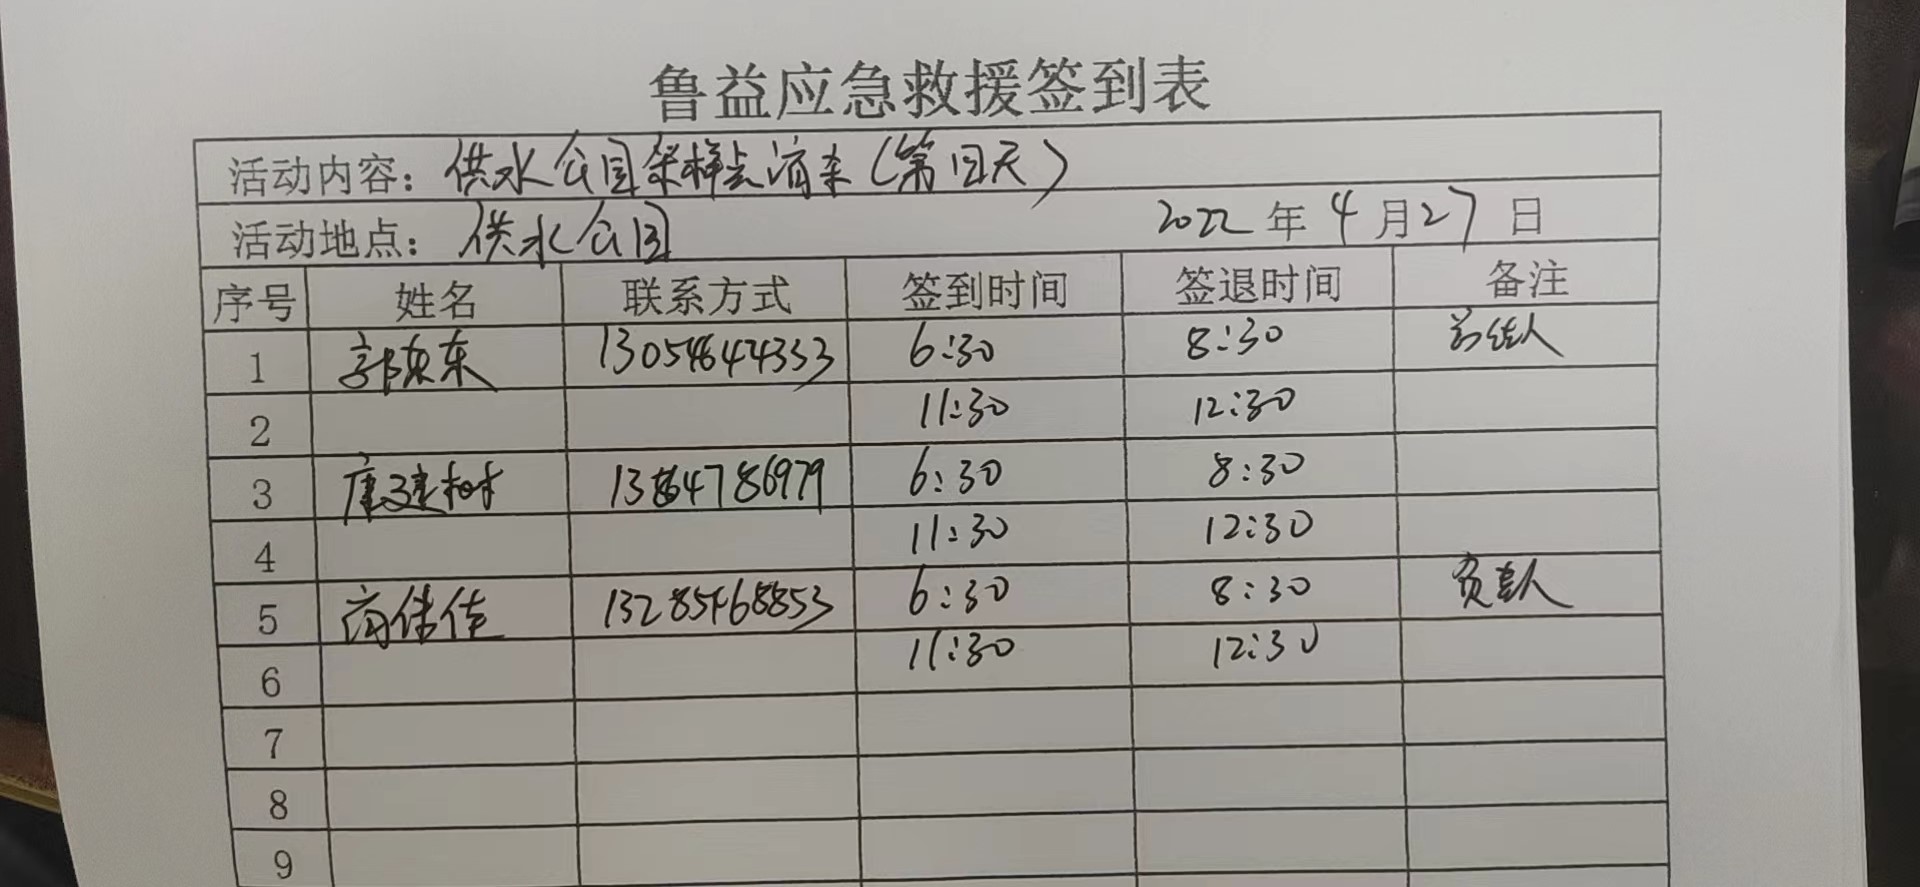 鲁益应急救援签到表
活动内容：供水公园采样点消杀（第四天）
活动地点：供水公园 2022年4月27日
序号 姓名 联系方式 签到时间 签退时间 备注
1 郭东东 13054644333 6:30 8:30
2 11:30 12:30
3 唐建树 13864786979 6:30 8:30
4 11:30 12:30
5 尚伟佳 13285468853 6:30 8:30 负责人
6 11:30 12:30
7
8
9